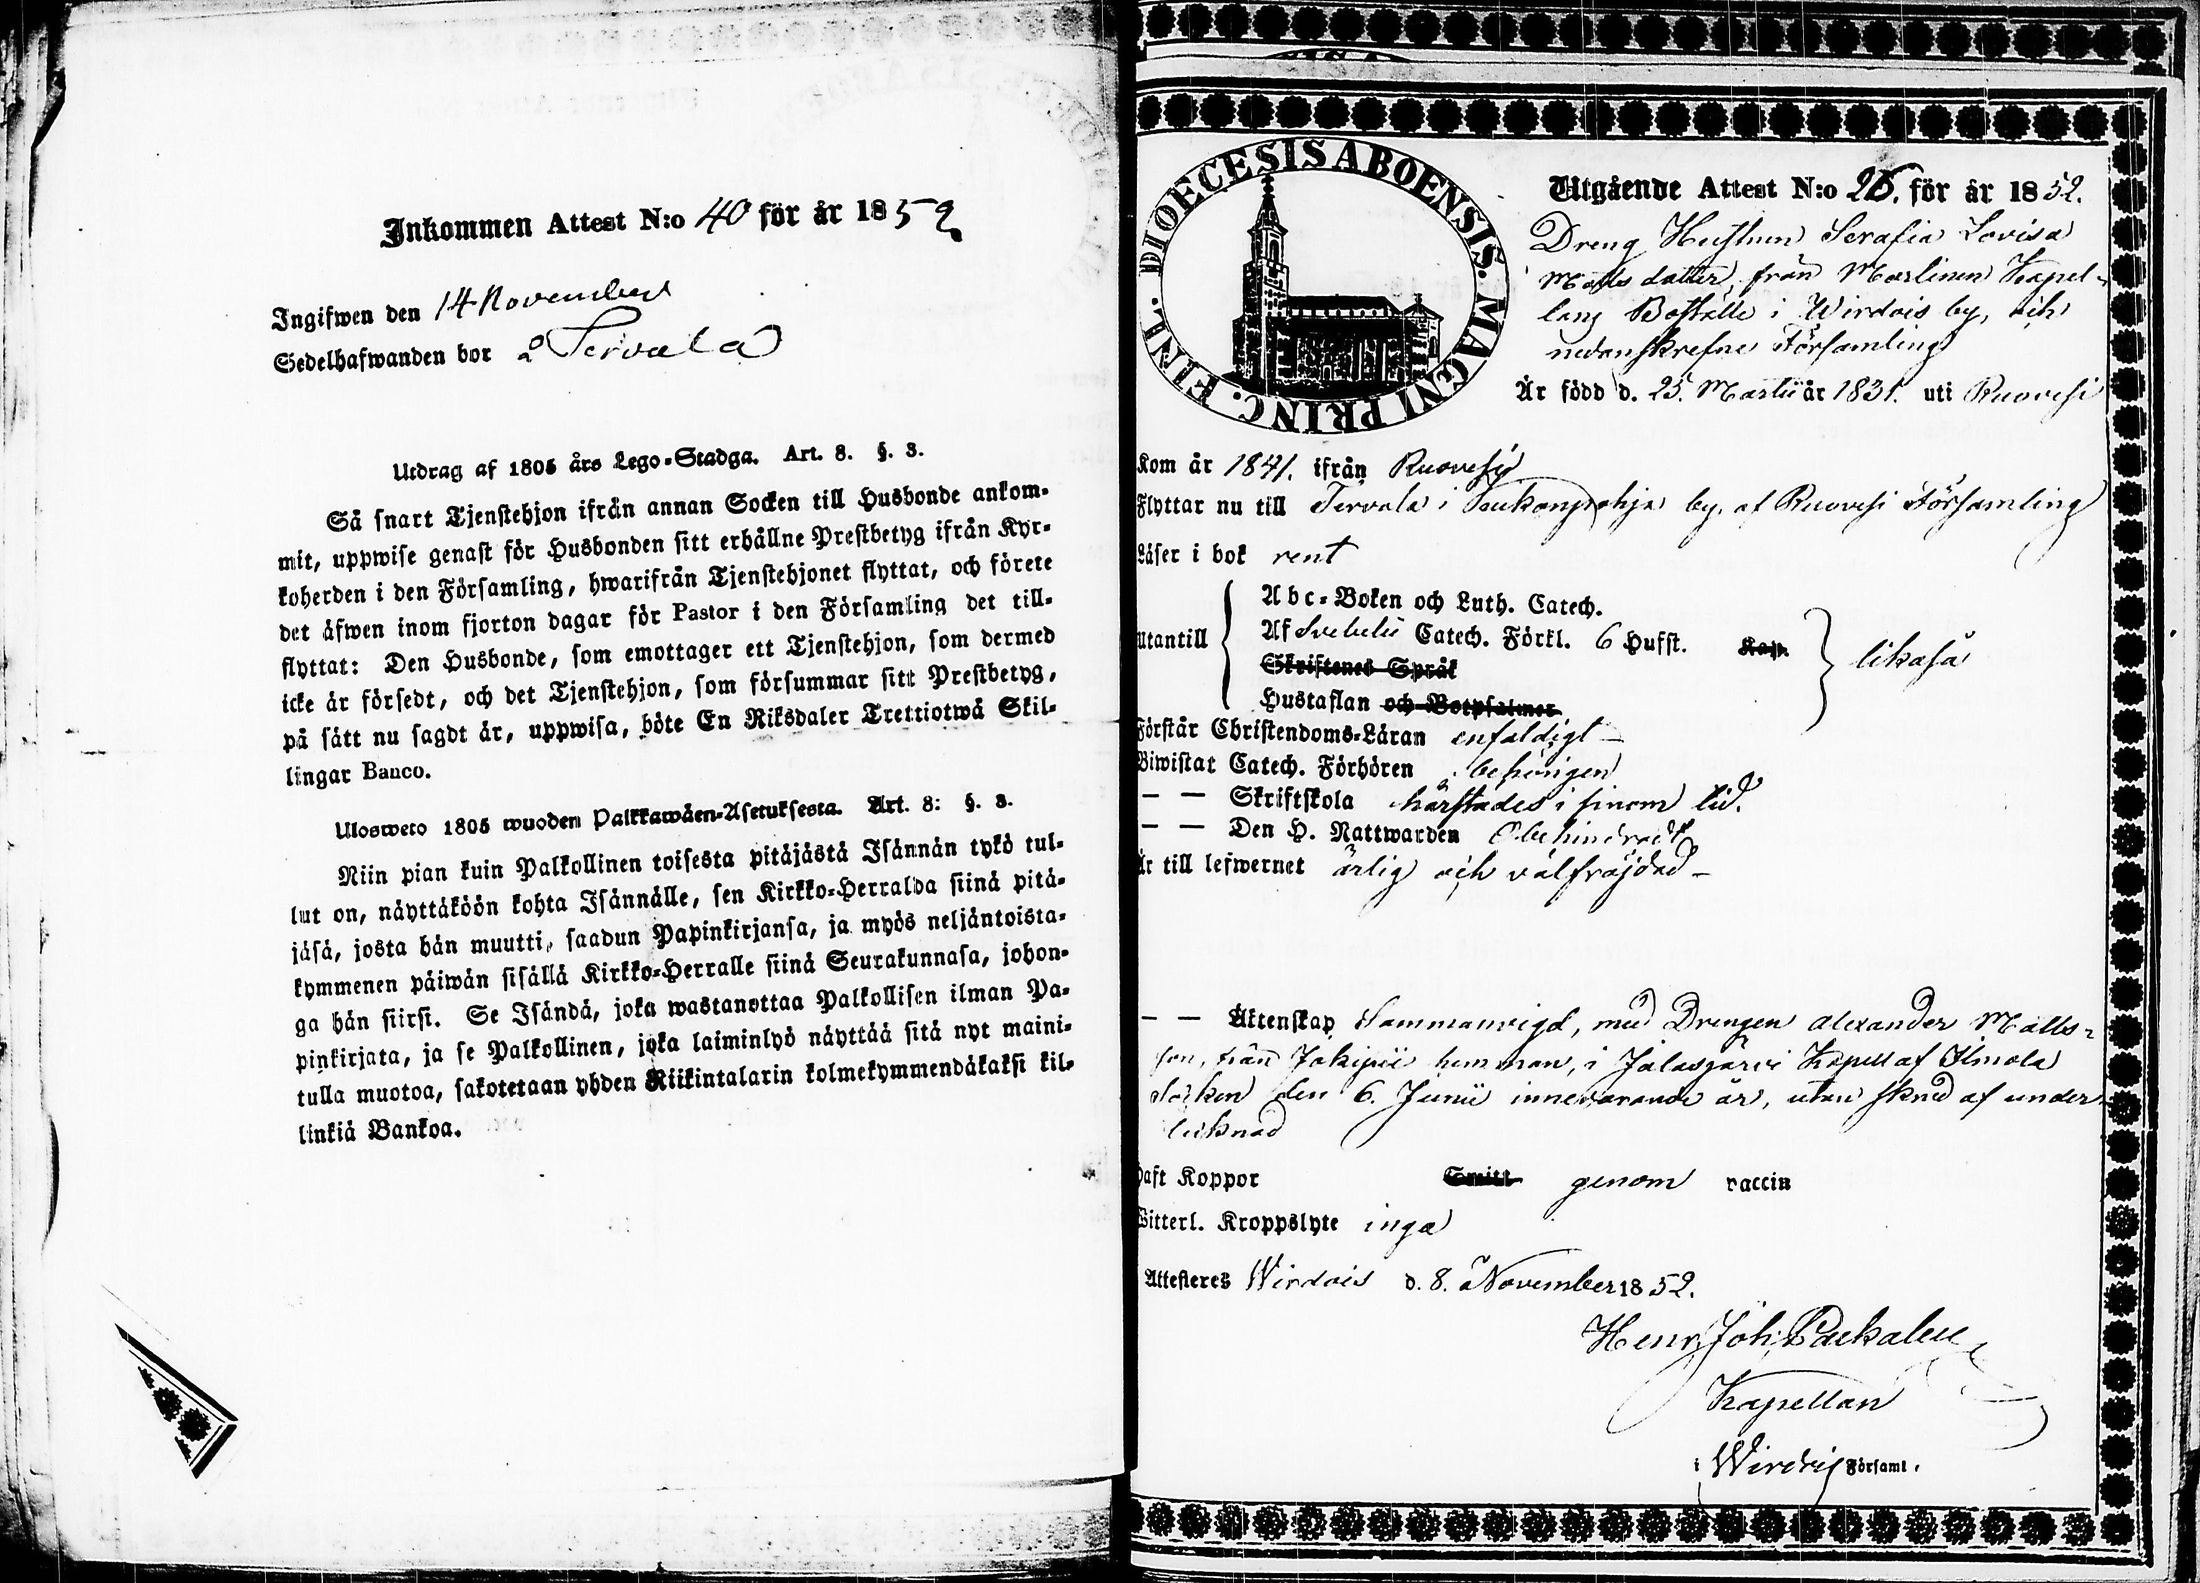 Inkommen Attest N:o 40 för år 1852
Ingifwen den 14 November
Sedelhafwanden bor å Tervala
Utdrag af 1805 års Lego-Stadga. Art. 8. §. 3.
Så snart Tjenstehjon ifrån annan Socken till Husbonde ankom-
mit, uppwise genast för Husbonden sitt erhållne Prestbetyg ifrån Kyr-
koherden i den Församling, hwarifrån Tjenstehjonet flyttat, och förete
det äfwen inom fjorton dagar för Pastor i den Församling det till-
flyttat: Den Husbonde, som emottager ett Tjenstehjon, som dermed
icke är försedt, och det Tjenstehjon, som försummar sitt Prestbetyg,
på sätt nu sagdt är, uppwisa, böte En Riksdaler Trettiotwå Skil-
lingar Banco.
Ulosweto 1805 wuoden Palkkawäen-Asetuksesta. Art. 8: §. 3.
Niin pian kuin Palkollinen toisesta pitäjästä Isännän tykö tul-
lut on, näyttäköön kohta Isännälle, sen Kirkko-Herralda siinä pitä-
jäsä, josta hän muutti, saadun Papinkirjansa, ja myös neljäntoista-
kymmenen päiwän sisällä Kirkko-Herralle siinä Seurakunnasa, johon-
ga hän siirsi. Se Isändä, joka wastanottaa Palkollisen ilman Pa-
pinkirjata, ja se Palkollinen, joka laiminlyö näyttää sitä nyt maini-
tulla muotoa, sakotetaan yhden Riikintalarin kolmekymmendäkaksi kil-
linkiä Bankoa.
DIOECESIS ABOENSIS. MAGNI PRINC. FINL.
Utgående Attest N:o 26. för år 1852.
Dreng Hustrun Serafia Lovisa
Matts dotter, från Marlinen Kapel-
lans Boställe i Wirdois by, och
nedanskrefne Församling
Är född d. 25. Martii år 1831. uti Ruovesi
Kom år 1841. ifrån Ruovesi
Flyttar nu till Tervala i Paukonpohja by, af Ruovesi Församling
Läser i bok rent
Abc-Boken och Luth. Catech.
Utantill Af Svebelii Catech. Förkl. 6 Hufst. Kap. likaså
Skriftenes Språk
Hustaflan och Botpsalmer
Förstår Christendoms-Läran enfaldigt
Biwistat Catech. Förhören behörigen
— — Skriftskola härstädes i sinom tid.
— — Den H. Nattwarden Obehindradt
Är till lefwernet ärlig och välfräjdad
— — Äktenskap Sammanvigd, med Drengen Alexander Matts-
son, från Jokipii hemman, i Jalasjärvi Kapell af Ilmola
Socken den 6. Junii innevarande år, utan skned af under
tecknad
Haft Koppor Smitt genom vaccin
Witterl. Kroppslyte inga
Attesteres Wirdois d. 8. November 1852.
Henr. Joh. Packalen
Kapellan
i Wirdois Församl.